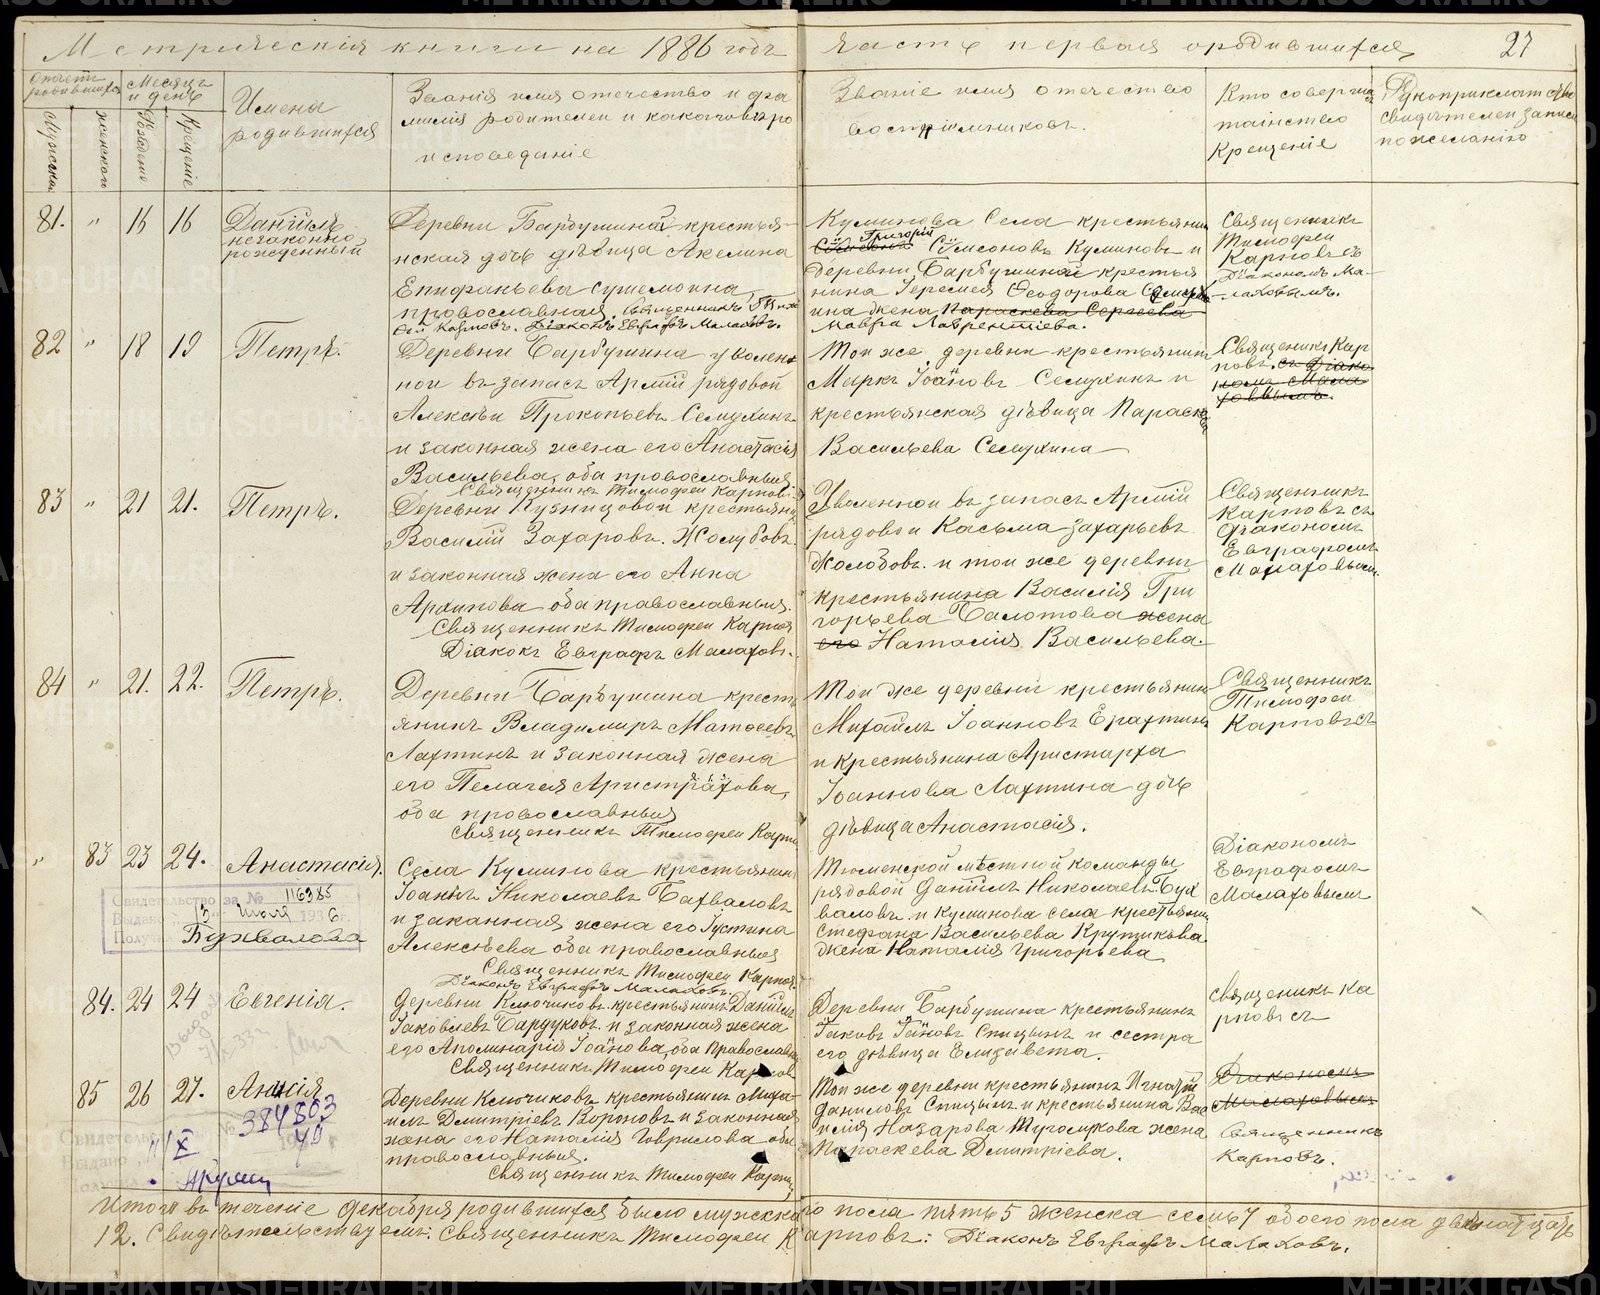 Метрическія книги на 1886 годъ
часть первая ородившихся
27
Счетъ родившихся
Мужеска
женской
Месяцъ и день
Рождение
Крещеніе
Имена
родившихся
Званія имя отечество и фа
милія родителей и какого веро
исповеданіе
Званіе имя отечество
восприемниковъ.
Кто совершал
таинство
Крещеніе
Рукоприкладство
свидетелей записи
по желанію
81. " 15 16 Даніилъ
незаконно
рожденный
Деревни Барбушиной крестья
нская дочь дѣвица Акелина
Епифаньева
православная. Священникъ Тимо
фей Карповъ. Діаконъ Евграфъ Малаховъ.
Куминова Села крестьянин
Григорій Сѵмеоновъ Куминовъ и
деревни Барбушиной крестья
нина Іеремея Феодорова
ина жена Параскева Сергеева
Мавра Лаврентіева.
Священникъ
Тимофей
Карповъ съ
Діакономъ Ма
лаховымъ.
82 " 18 19 Петръ.
Деревни Барбушина уволен
ной въ запасъ Арміи рядовой
Алексѣй Прокопьевъ Семухинъ
и законная жена его Анастасія
Васильева, оба православныя
Священникъ Тимофей Карповъ
Той же деревни крестьянинъ
Маркъ Іоановъ Семухинъ и
крестьянская дѣвица Параске
Васильева Семухина
Священникъ Кар
повъ. съ Діако
номъ Мала
ховымъ.
83 " 21 21. Петръ.
Деревни Кузнецовой крестьянин
Василій Захаровъ. Жолубовъ
и законная жена его Анна
Архипова оба православныя.
Священникъ Тимофей Карпов
Діаконъ Евграфъ Малаховъ.
Уволенной въ запасъ Арміи
рядовой Касьма Захарьевъ
Жолобовъ. и той же деревни
крестьянина Василія Гри
горьева Балотова жена
его Наталія Васильева.
Священникъ
Карповъ съ
Діакономъ
Евграфомъ
Малаховым.
84 " 21. 22. Петръ.
Деревни Барбушина крест
янинъ Владимиръ Матфеевъ
Лахтинъ и законная жена
его Пелагея Аристрахова,
оба православныя
Священникъ Тимофей Карпо
Той же деревни крестьянин
Михаилъ Іоанновъ Ерахтинъ
и крестьянина Аристарха
Іоаннова Лахтина дочь
дѣвица Анастасія.
Священникъ
Тимофей
Карповъ съ
Діакономъ
Евграфомъ
Малаховымъ
" 83 23 24. Анастасія.
Села Куминова крестьянин
Іоаннъ Николаевъ Бахваловъ
и законная жена его Іустина
Алексѣева оба православныя
Священникъ Тимофей Карпов
Діаконъ Евграфъ Малаховъ.
Тюменской мѣстной команды
рядовой Даніилъ Николаевъ Бух
валовъ и Куминова села крестьянин
Стефана Васильева Крупикова
жена Наталія Григорьева
Свидетельство за № 116385
Выдано "13" июля 1936 г.
Получ. Бухвалова
84. 24 24 Евгенія.
Деревни Ключиковъ крестьянинъ Даніилъ
Іаковлевъ Бардуковъ и законная жена
его Аполинарія Іоанова, оба Православны
Священникъ Тимофей Карпов
Деревни Барбушина крестьянинъ
Іаковъ Іановъ Спицынъ и сестра
его дѣвица Елизавета.
Священникъ Ка
рповъ съ
Діакономъ
Малаховымъ
85 26 27. Анисія
Деревни Ключиковъ крестьянинъ Миха
илъ Димитріевъ Вороновъ и законная
жена его Наталія Гаврилова оба
православныя.
Священникъ Тимофей Карпо
Той же деревни крестьянинъ Игнатій
Даниловъ Спицынъ и крестьянина Ва
силія Назарова Тугомукова жена
Параскева Димитріева.
Священникъ
Карповъ.
№ 384803
11/X 40 г
Свидетель
Выдано
Итого въ теченіе декабря родившихся было мужска
го пола пять 5 женска семь 7 обоего пола двѣнатцать
12. Свидѣтельствуемъ: Священникъ Тимофей К
арповъ: Діаконъ Евграфъ Малаховъ.
METRIKI.GASO-URAL.RU